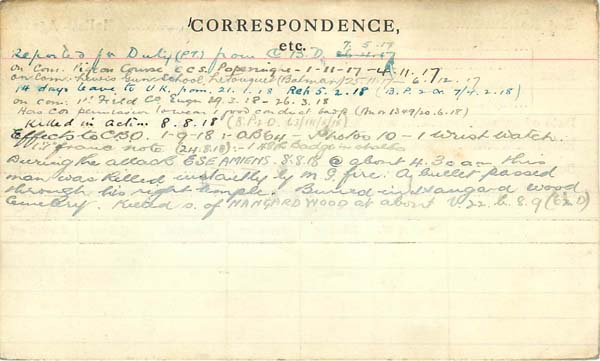 CORRESPONDENCE,
etc.
7. 5. 17
Reported for Duty (P.T.) from C.B.D.
on Com. Pigeon Course E.C.S. Poperinge - 1-11-17 - 4.11.17
on Com. Lewis Gun School, Letouquet (Batman) 25.11.17 - 6.12.17
14 days leave to U.K. from. 21.1.18 Reh 5.2.18 (B.P.2 7/4.2.18)
on com. 1st Field Co Engrs 19.3.18 - 26.3.18
Has COs permission to wear 1 good conduct badge (1349/20.6.18)
Killed in action 8.8.18
Effects to C.B.O. 1-9-18 :- AB64 - Photos 10 - 1 Wrist Watch.
1 5 franc note (24.8.18) :- 1 Badge
During the attack E.S.E. AMIENS. 8.8.18 @ about 4.30 am this
man was killed instantly by M.G. fire. A bullet passed
through his right temple. Buried in Hangard wood
Cemetery. Killed S. of HANGARD WOOD at about V.22.b.8.9